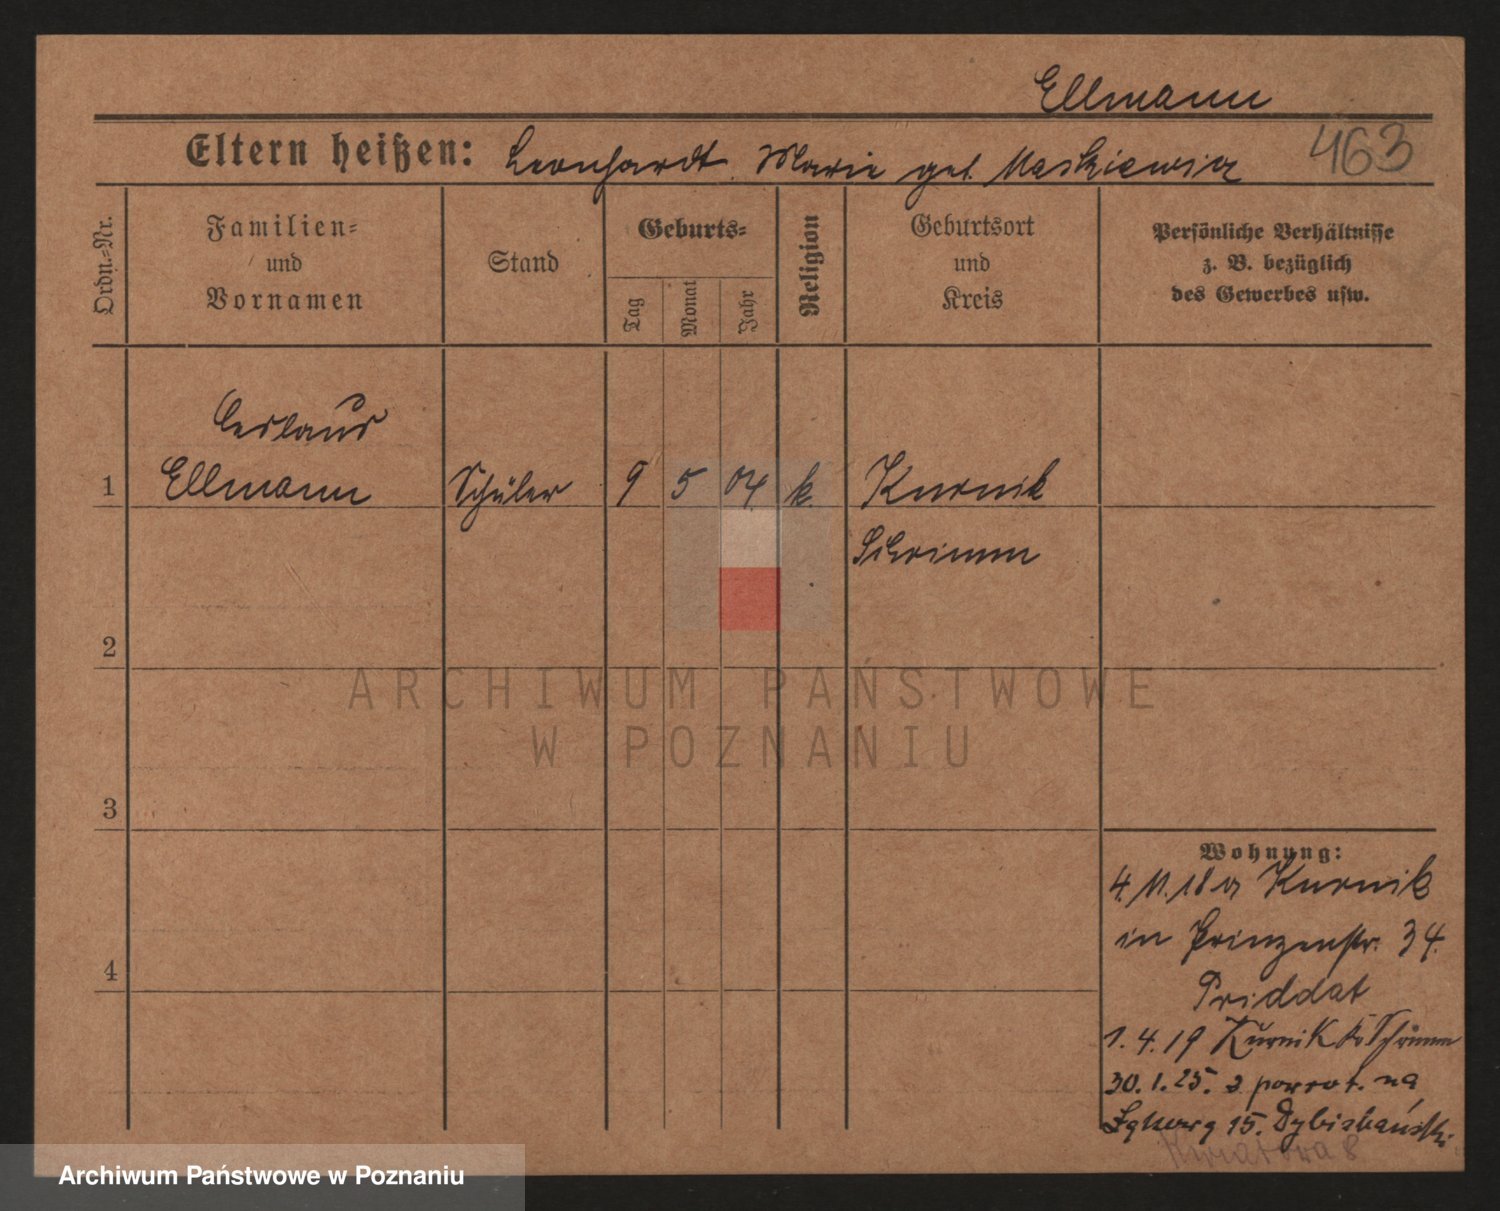 Ellmann
Eltern heißen: Leonhardt Marie geb. Maskiewicz
463
Ordn.-Nr.
Familien-
und
Vornamen
Stand
Geburts-
Tag
Monat
Jahr
Religion
Geburtsort
und
Kreis
Persönliche Verhältnisse
z. B. bezüglich
des Gewerbes usw.
Ceslaus
1 Ellmann Schüler 9 5 04 k. Kurnik
Schrimm
2
ARCHIWUM PAŃSTWOWE
W POZNANIU
3
Wohnung:
4.11.18 a Kurnik
in Prinzenstr. 34.
4
Priddat
1.4.19 Kurnik Kr. Schrimm
30.1.25. z powrot. na
15. Dybizbański
8
Archiwum Państwowe w Poznaniu